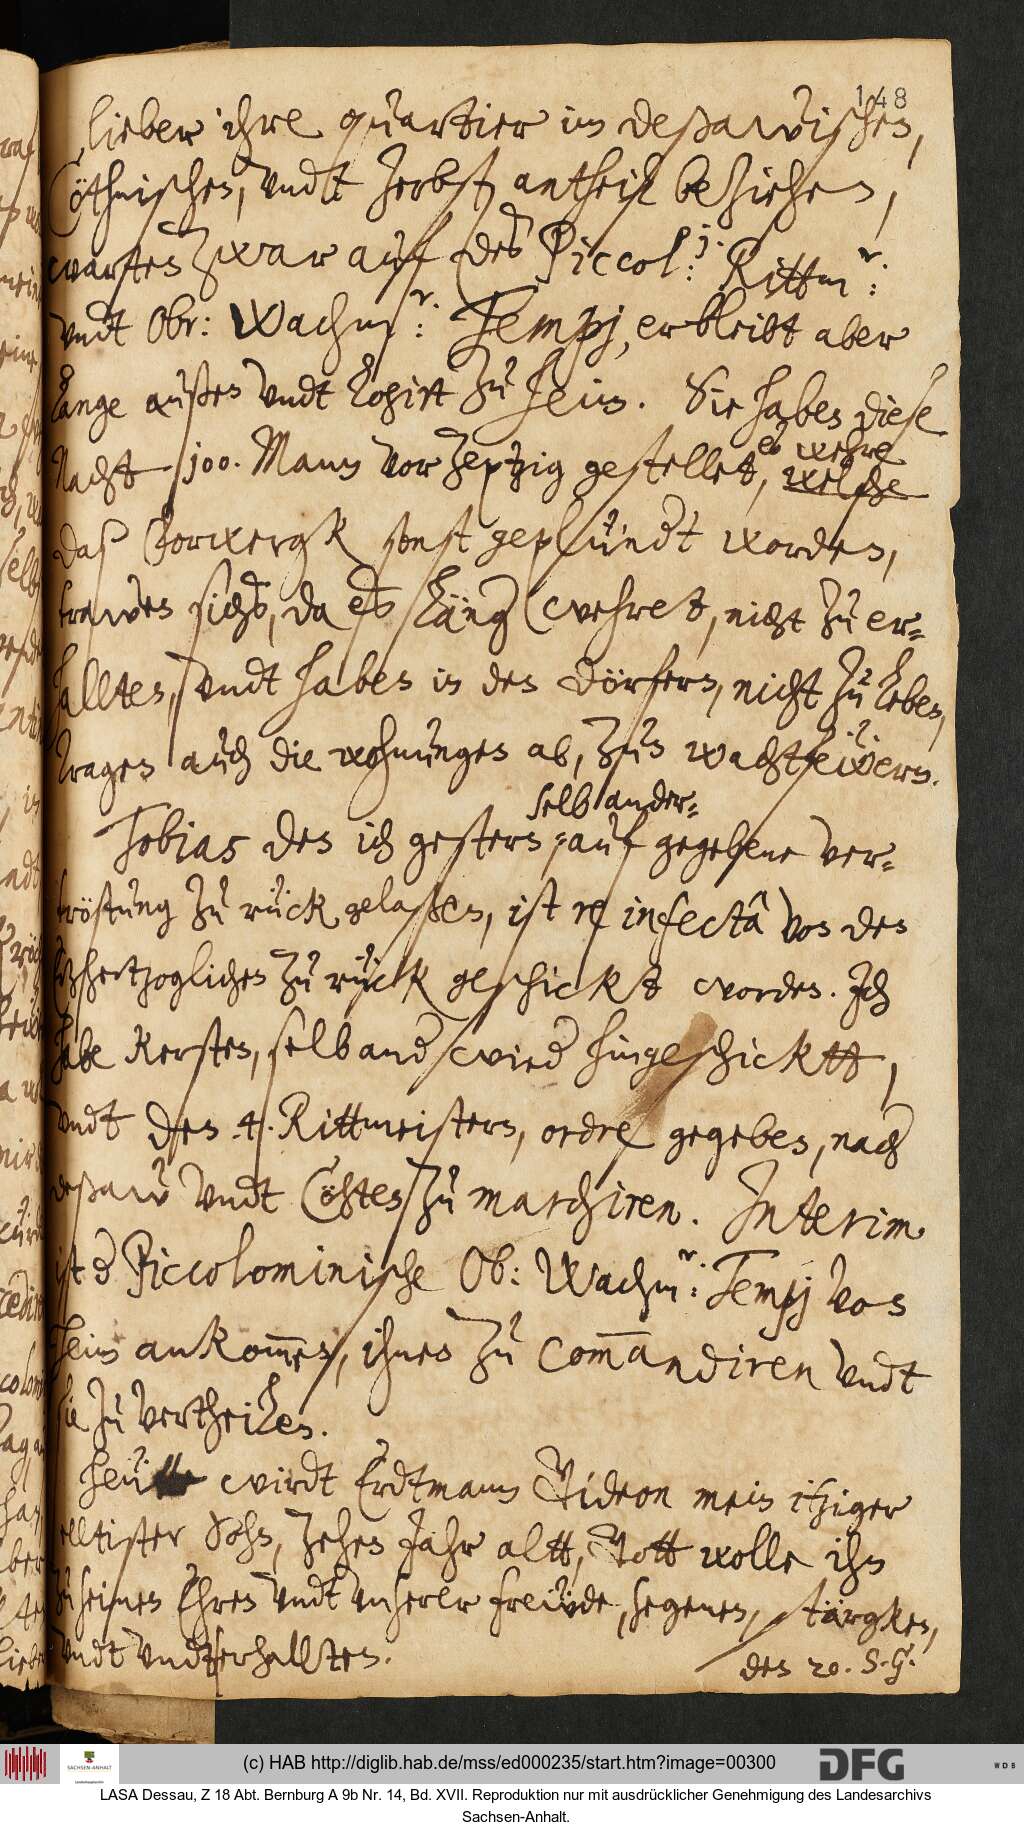 148
lieber ihre quartier im deßawischen,
Cöthnischen, vndt Zerbst antheil beziehen,
warten zwar auf des Piccol:j. Rittmr:
vndt Obr: Wachmr: Tempj, er bleibt aber
lange außen vndt logirt zu Hein. Sie haben diese
Nacht 100. Mann vor Zeptzig gestellet, welche
es wehre
daß Vorwergk sonst geplündt worden,
trawen sichs, da es läng wehret, nicht zu er-
halten, vndt haben in den dörfern, nicht zu leben,
tragen auch die wohnungen ab, zun wachtfewern.
selb ander-
Tobias den ich gestern auf gegebene ver-
tröstung zu rück gelaßen, ist re infectâ von den
Ertzhertzoglichen zu rück geschickt worden. Jch
habe Kersten, selb and wied hingeschicktt,
vndt den 4. Rittmeistern, ordre gegeben, nach
deßaw vndt Cöhten zu marchiren. Interim
ist d Piccolominische Ob: Wachmr: Tempj von
Hein ankommen, ihnen zu commandiren vndt
sie zu vertheilen.
Heütte wirdt Erdtmann Gideon mein itziger
elltister Sohn, zehen Jahr altt, Gott wolle ihn
zu seinen Ehren vndt vnserer frewde, segenen, stärgken,
vndt vndterhallten.
den 20. S. G.
(c) HAB http://diglib.hab.de/mss/ed000235/start.htm?image=00300
SACHSEN-ANHALT
DFG
WDB
LASA Dessau, Z 18 Abt. Bernburg A 9b Nr. 14, Bd. XVII. Reproduktion nur mit ausdrücklicher Genehmigung des Landesarchivs
Sachsen-Anhalt.